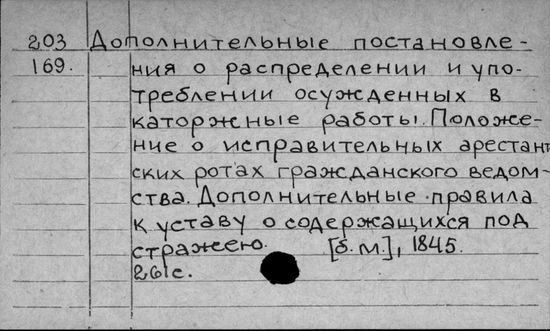 203 Дополнительные постановле-
169. ния о распределении и упо-
треблении осужденных в
каторжные работы. Положе-
ние о исправительных арестант
ских ротах гражданского ведом-
ства. Дополнительные правила
к уставу о содержащихся под
стражею. [б.м], 1845.
261с.